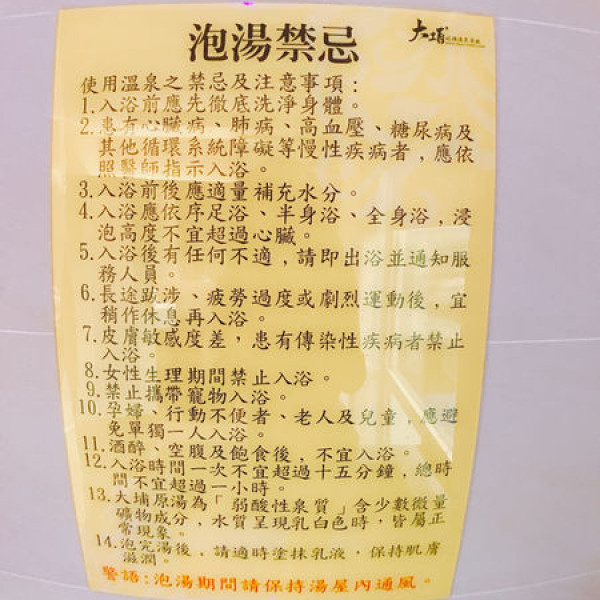 泡湯禁忌
大埔
使用溫泉之禁忌及注意事項：
1.入浴前應先徹底洗淨身體。
2.患有心臟病、肺病、高血壓、糖尿病及
其他循環系統障礙等慢性疾病者，應依
照醫師指示入浴。
3.入浴前後應適量補充水分。
4.入浴應依序足浴、半身浴、全身浴，浸
泡高度不宜超過心臟。
5.入浴後有任何不適，請即出浴並通知服
務人員。
6.長途跋涉、疲勞過度或劇烈運動後，宜
稍作休息再入浴。
7.皮膚敏感度差，患有傳染性疾病者禁止
入浴。
8.女性生理期間禁止入浴。
9.禁止攜帶寵物入浴。
10.孕婦、行動不便者、老人及兒童，應避
免單獨一人入浴。
11.酒醉、空腹及飽食後，不宜入浴。
12.入浴時間一次不宜超過十五分鐘，總時
間不宜超過一小時。
13.大埔原湯為「弱酸性泉質」含少數微量
礦物成分，水質呈現乳白色時，皆屬正
常現象。
14.泡完湯後，請適時塗抹乳液，保持肌膚
滋潤。
警語：泡湯期間請保持湯屋內通風。